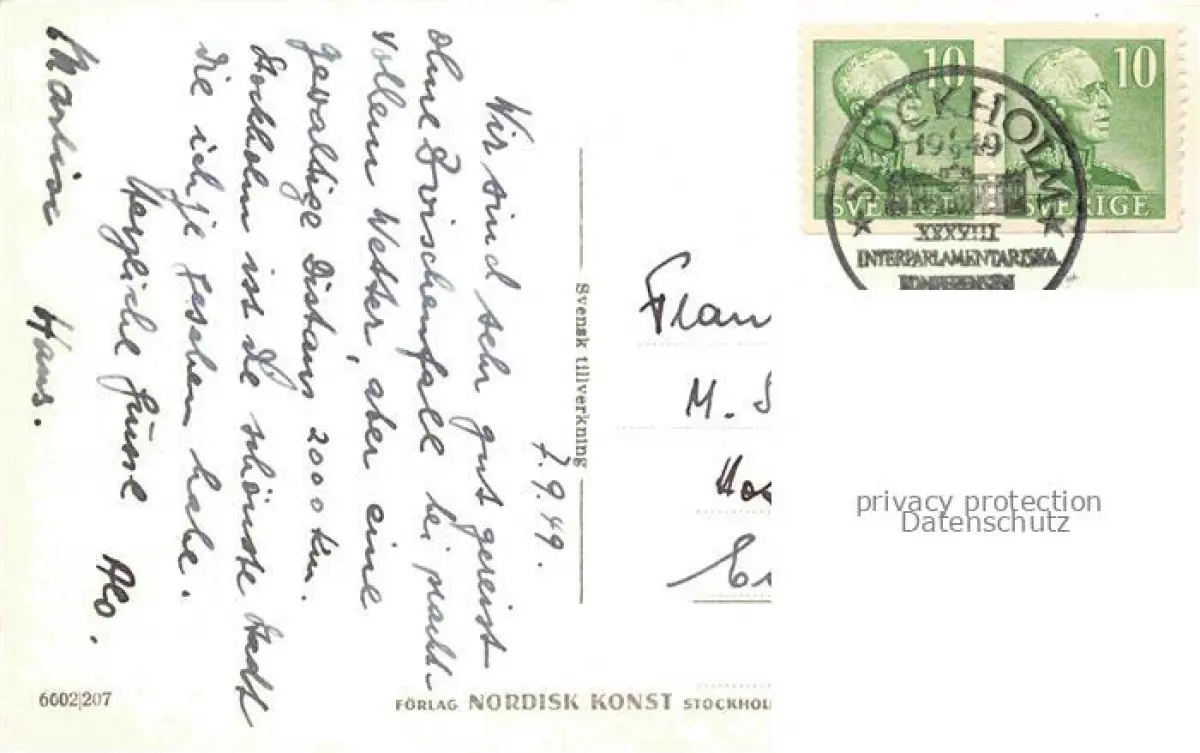 7.9.49.
Wir sind sehr gut gereist
ohne Zwischenfall bei pracht-
vollem Wetter, aber eine
gewaltige Distanz 2000 km.
Stockholm ist die schönste Stadt
die ich je gesehen habe.
Herzliche Grüsse
Hans.
Svensk tillverkning
10 10
SVERIGE SVERIGE
STOCKHOLM
1949
XXXVIII
INTERPARLAMENTARISKA
KONFERENSEN
Frau
M. S
privacy protection
Datenschutz
6602/207
FÖRLAG NORDISK KONST STOCKHOL